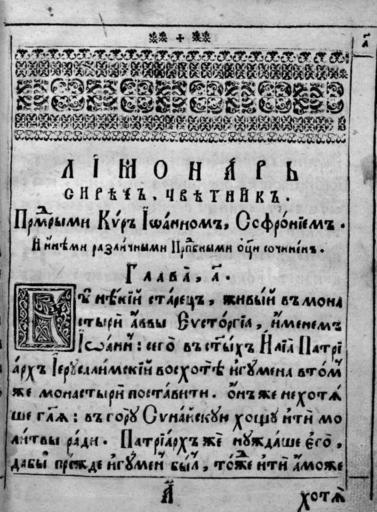 а҃
ЛІМОНА́РЬ
СИРЕ́ЧЬ, ЦВѢ́ТНИКЪ.
Прмⷣрыми Кѵ́ръ Іѡа́нномъ, Софро́нїемъ.
И и҆нѣ́ми разли́чными Прⷣпбными ѻ҆ц҃ы сочине́нъ.
Глава̀, а҃.
Бѣ̀ нѣ́кїй ста́рецъ, живы́й въ мона
стырѝ а҆́ввы Еѵсто́ргїа, и҆́менемъ
Іѡа́ннъ: сего̀ въ ст҃ы́хъ Илїа̀ Патрї
а́рхъ Іерⷭ҇али́мскїй восхотѣ̀ и҆гꙋ́мена в то́мъ
же монастырѝ поста́вити. ѻ҆́нъ же не хотѧ́
ше гл҃ѧ: въ го́рꙋ Сѵна́йскꙋю хощꙋ̀ и҆тѝ мо
ли́твы ра́ди. Патрїа́рхъ же нꙋжда́ше є҆го̀,
дабы̀ пре́жде и҆гꙋ́менъ бы́лъ, то́же и҆тѝ а҆́може
а҃
хотѧ̀